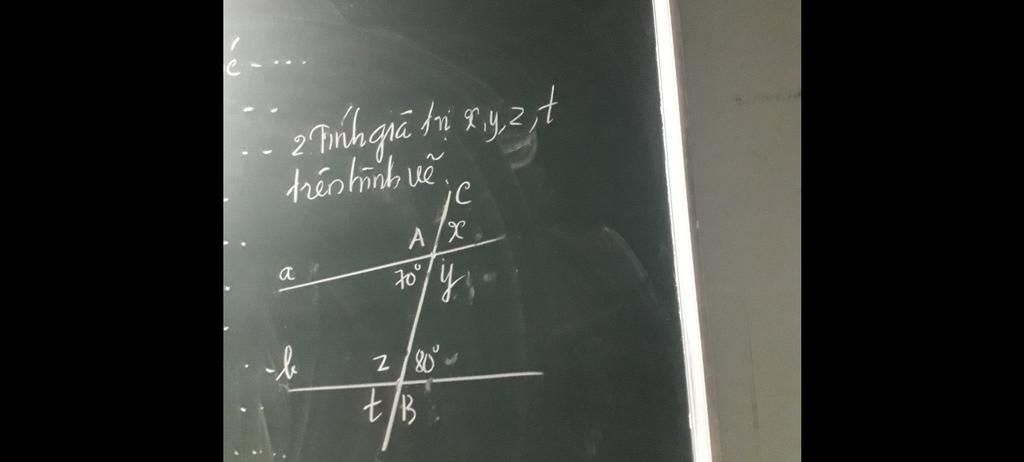 é - ...
2 Tính giá trị x, y, z, t
trên hình vẽ.
C
A x
a 70° y
b z 80°
t B